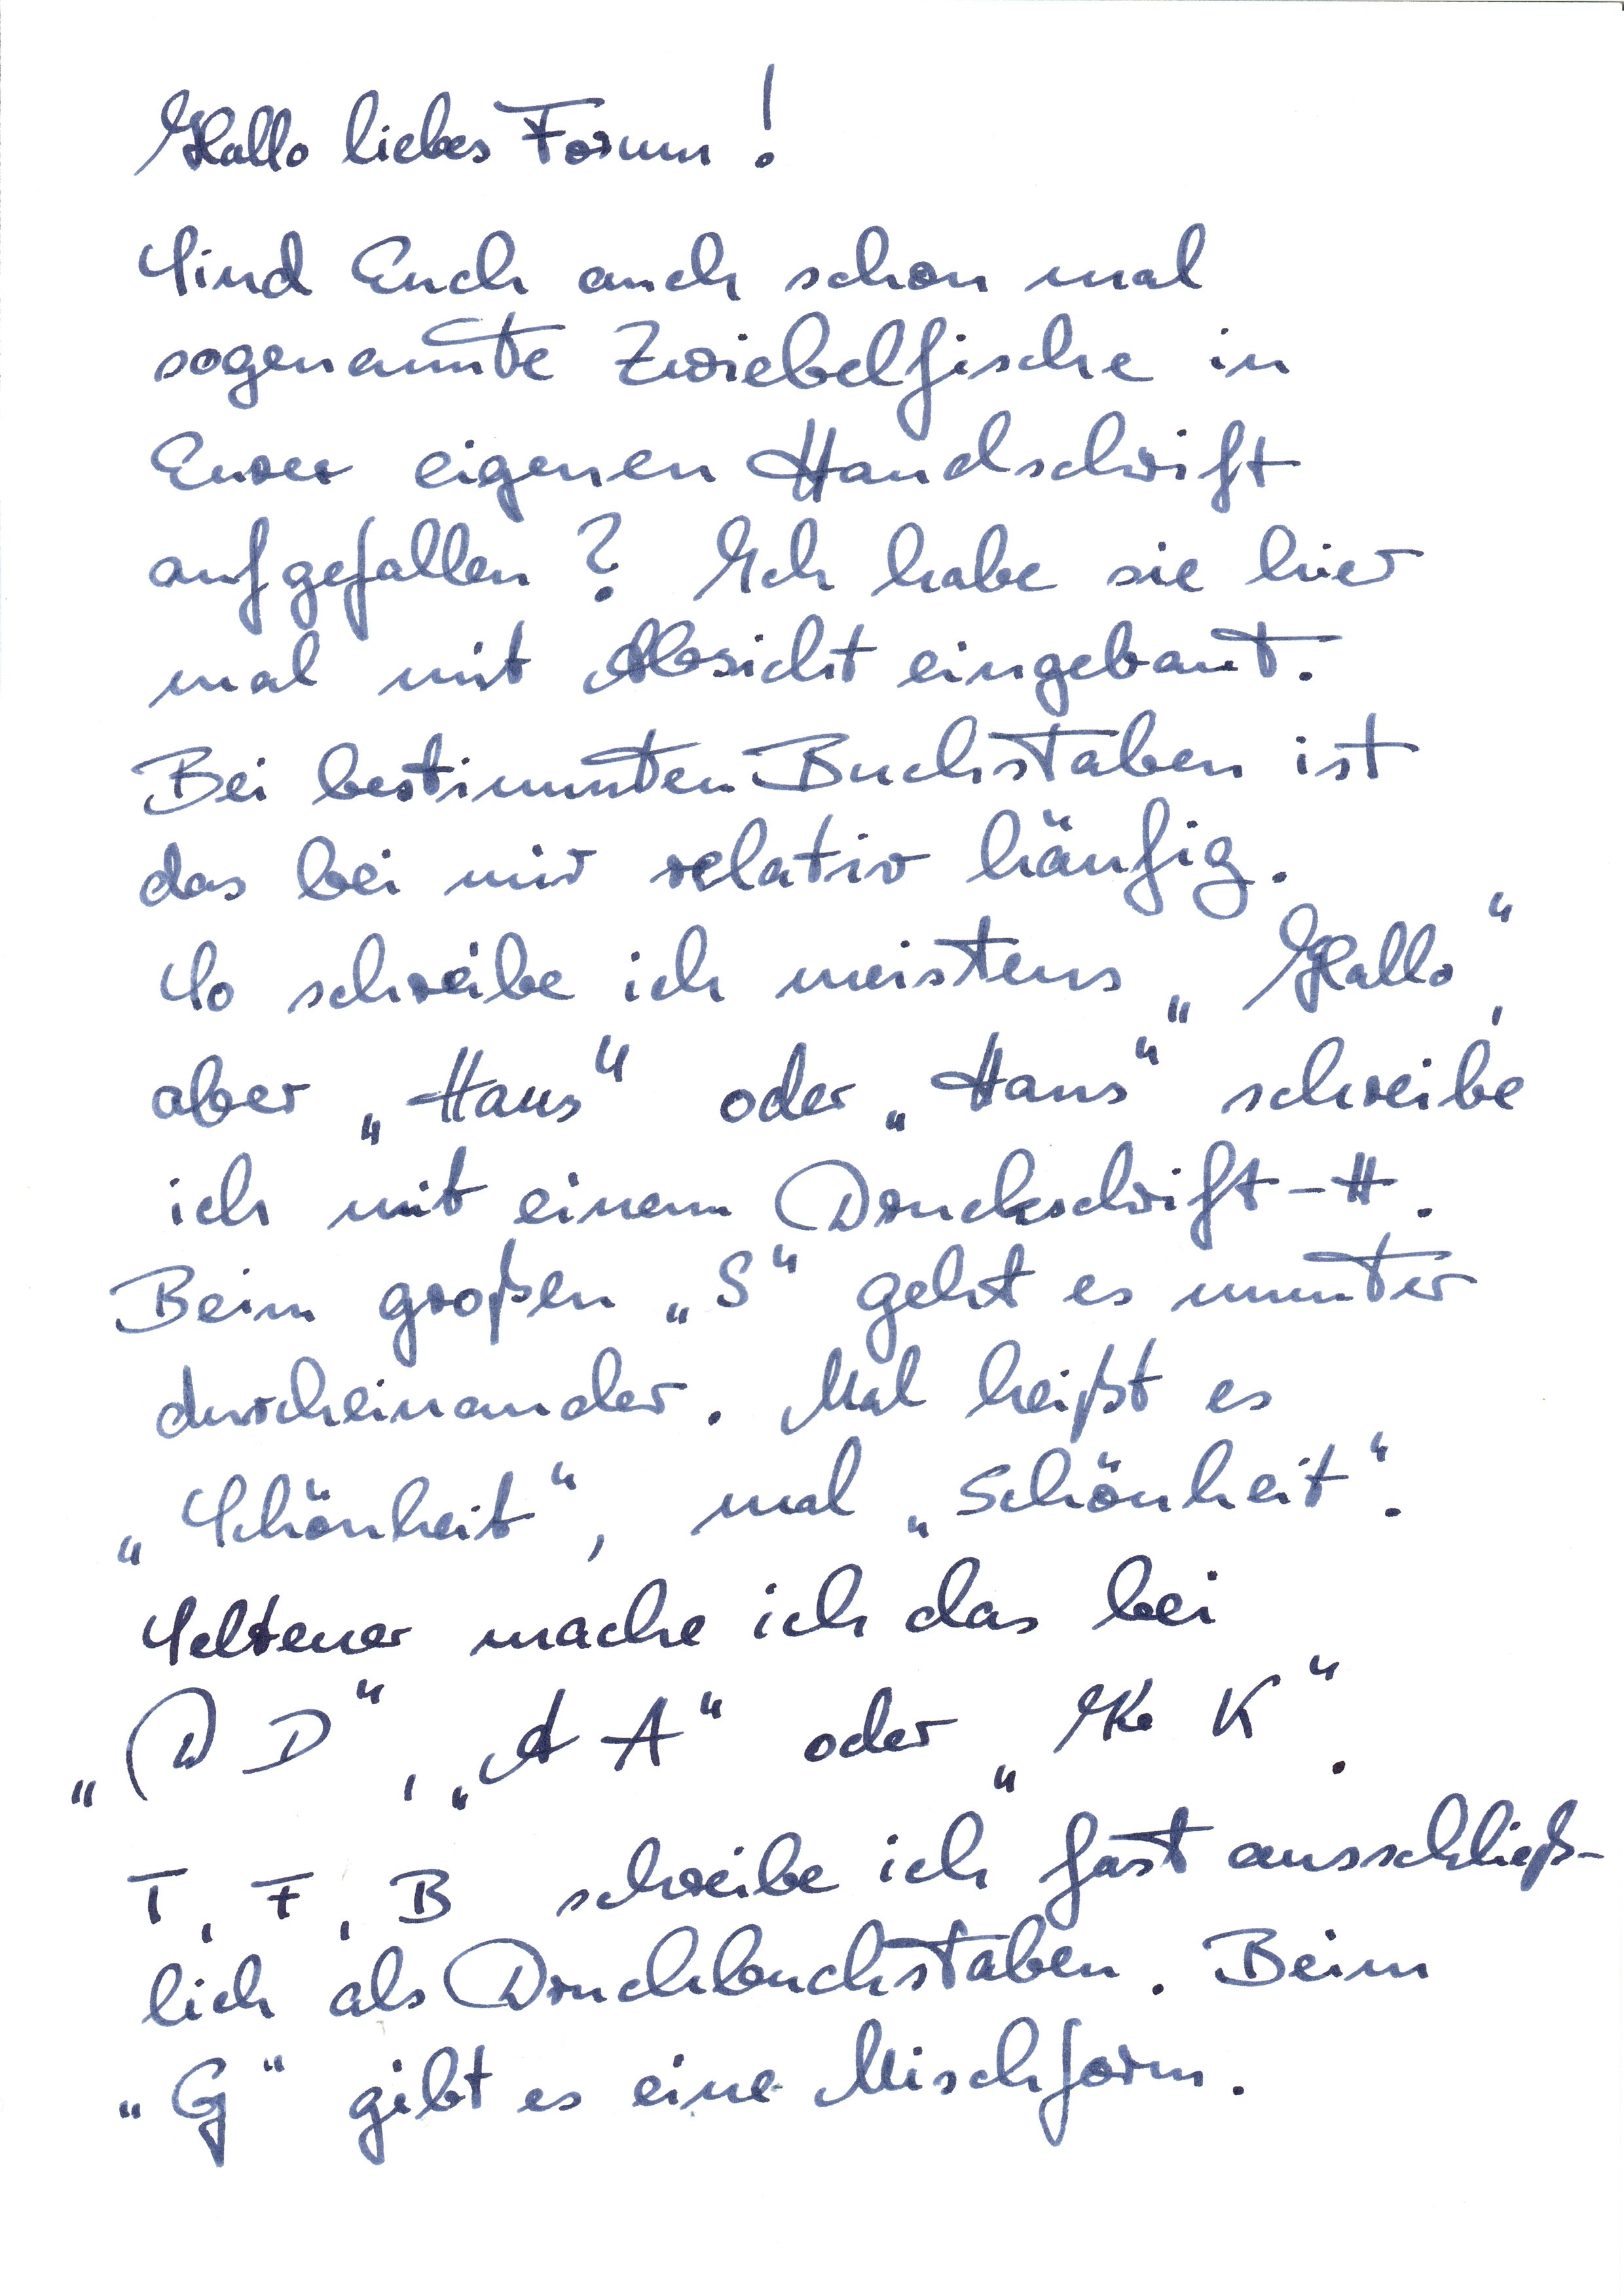 Hallo liebes Forum!
Sind Euch auch schon mal
sogenannte Zwiebelfische in
Eurer eigenen Handschrift
aufgefallen? Ich habe sie hier
mal mit Absicht eingebaut.
Bei bestimmten Buchstaben ist
das bei mir relativ häufig.
So schreibe ich meistens „Hallo“,
aber „Haus“ oder „Hans“ schreibe
ich mit einem Druckschrift-H.
Beim großen „S“ geht es munter
durcheinander. Mal heißt es
„Schönheit“, mal „Schönheit“.
Seltener mache ich das bei
„D D“, „A A“ oder „K K“.
T, F, B schreibe ich fast ausschließ-
lich als Druckbuchstaben. Beim
„G“ gibt es eine Mischform.